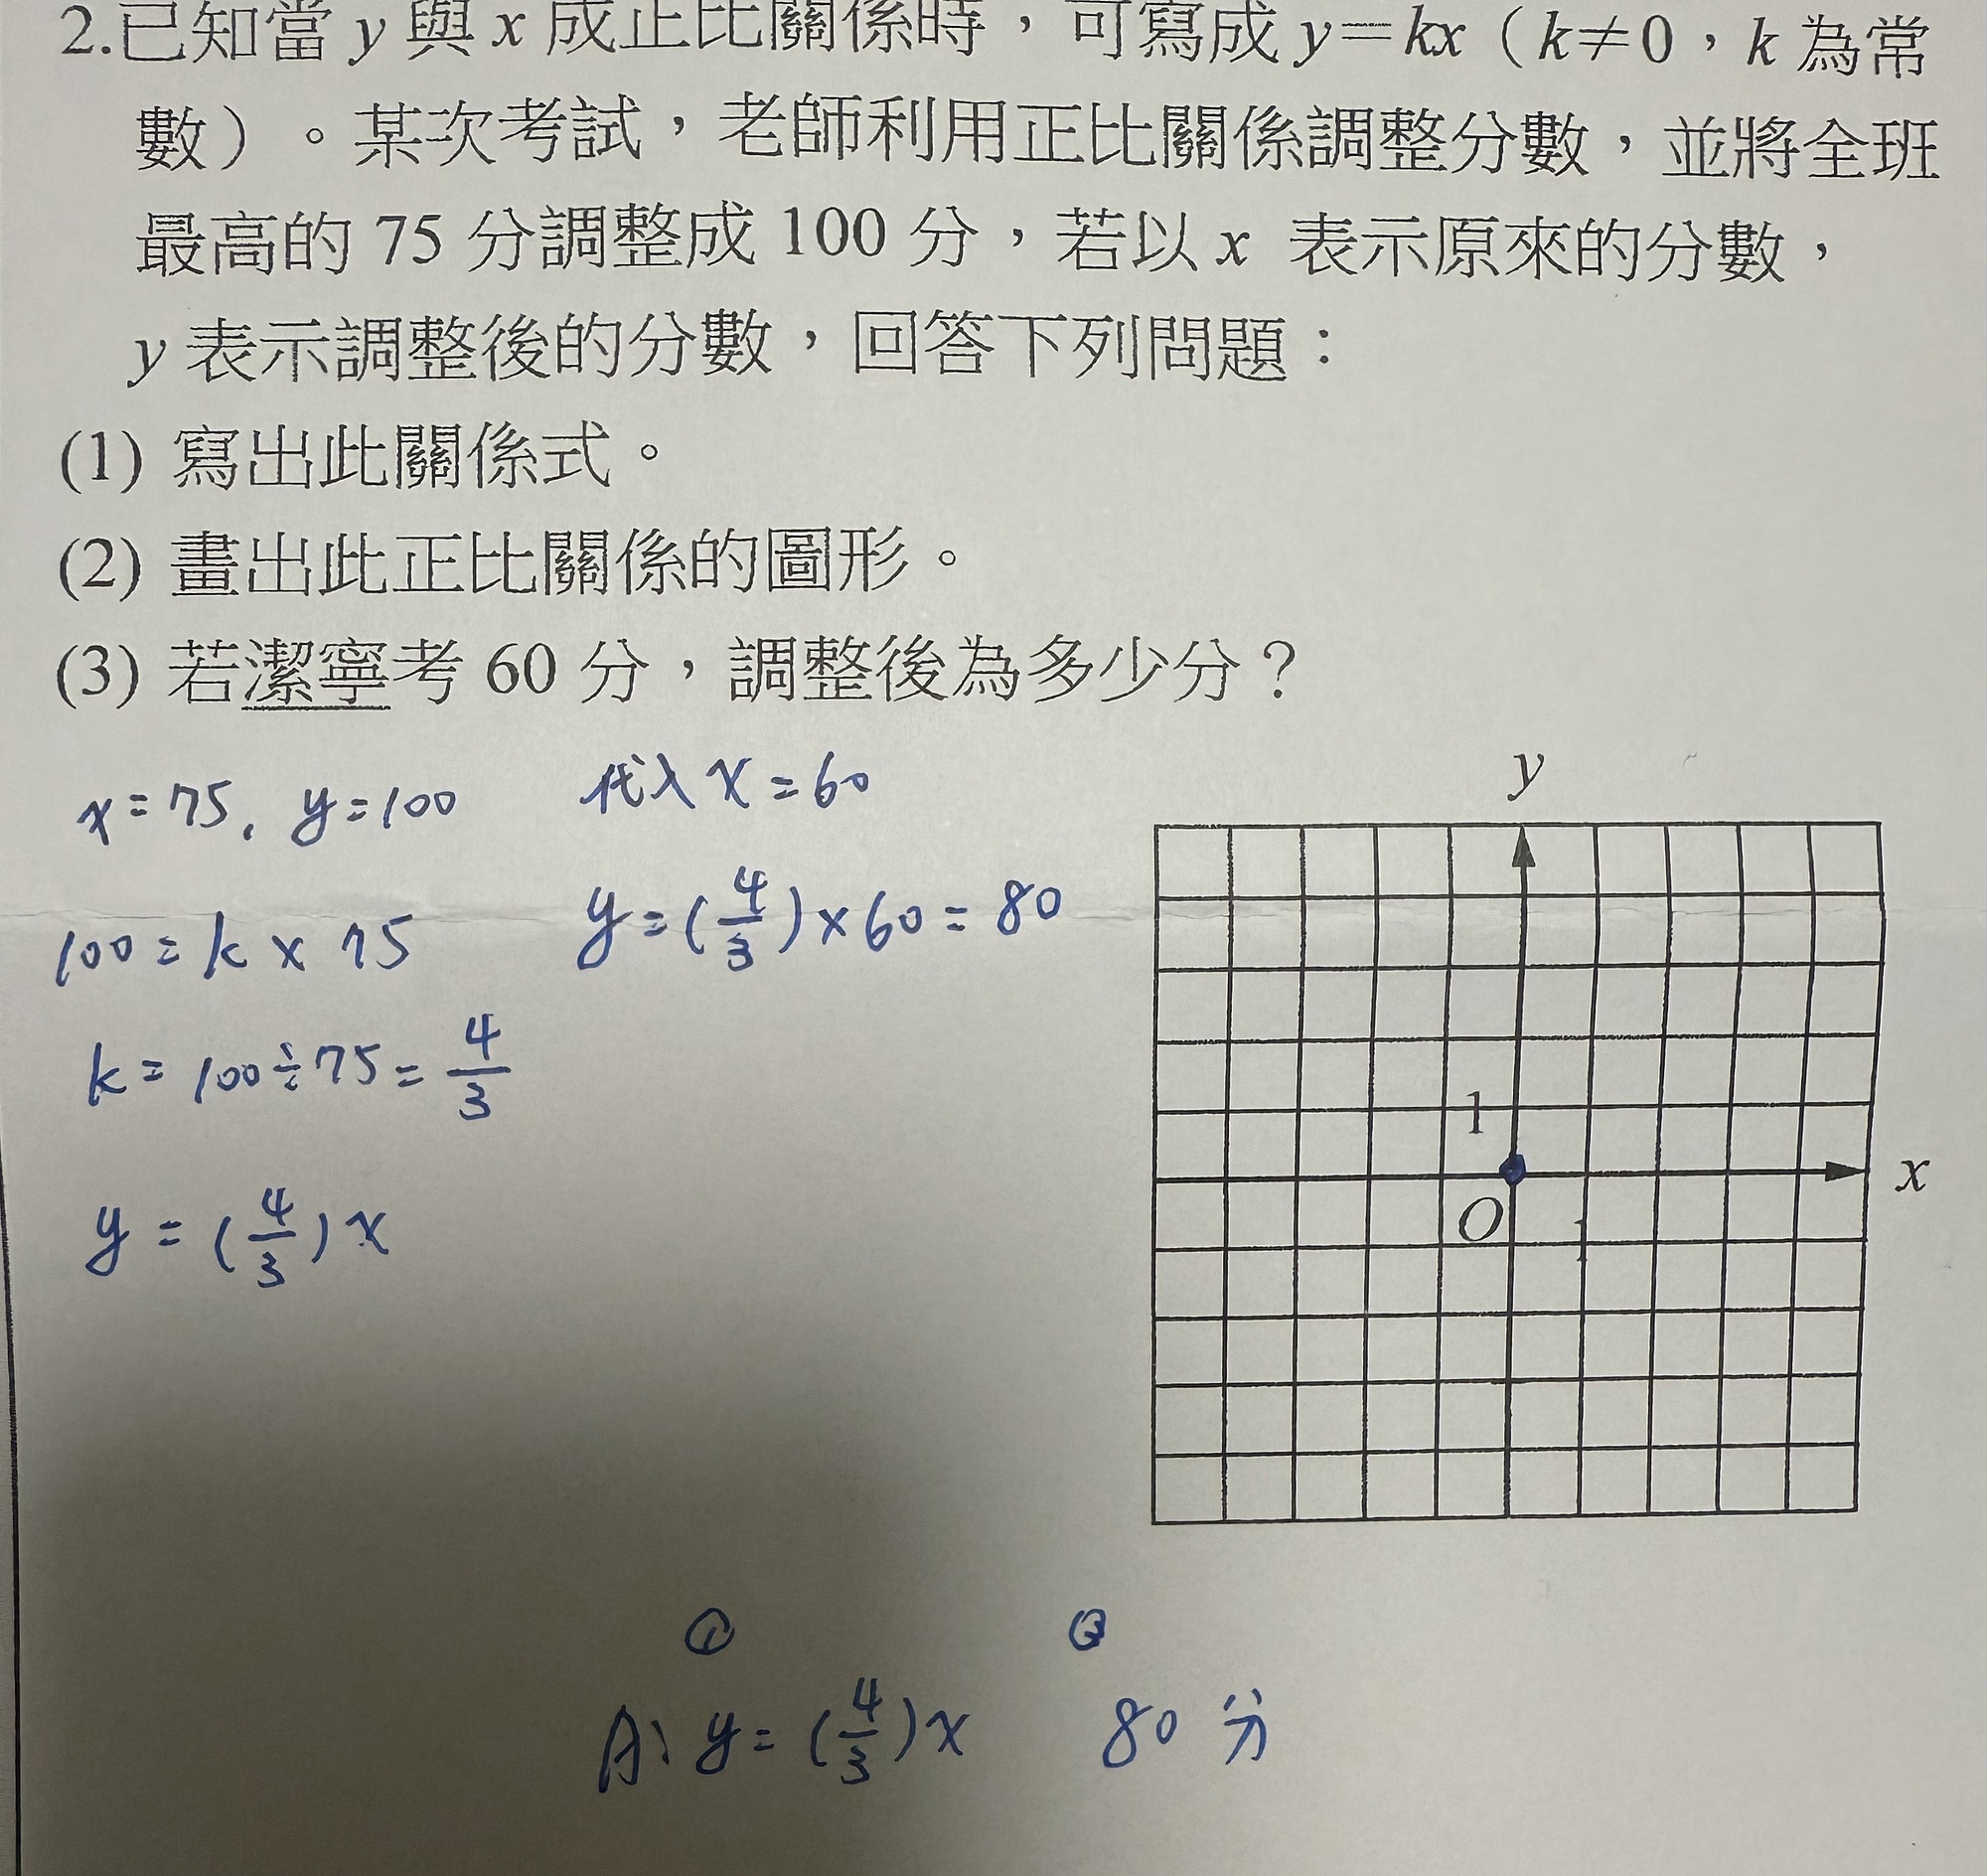 2.已知當 y 與 x 成正比關係時，可寫成 y＝kx（k≠0，k 為常
數）。某次考試，老師利用正比關係調整分數，並將全班
最高的 75 分調整成 100 分，若以 x 表示原來的分數，
y 表示調整後的分數，回答下列問題：
(1) 寫出此關係式。
(2) 畫出此正比關係的圖形。
(3) 若潔寧考 60 分，調整後為多少分？
x=75, y=100
100=k×75
k=100÷75=4/3
y=(4/3)x
代入 x=60
y=(4/3)×60=80
y
1
x
O
1
① ③
A: y=(4/3)x 80 分